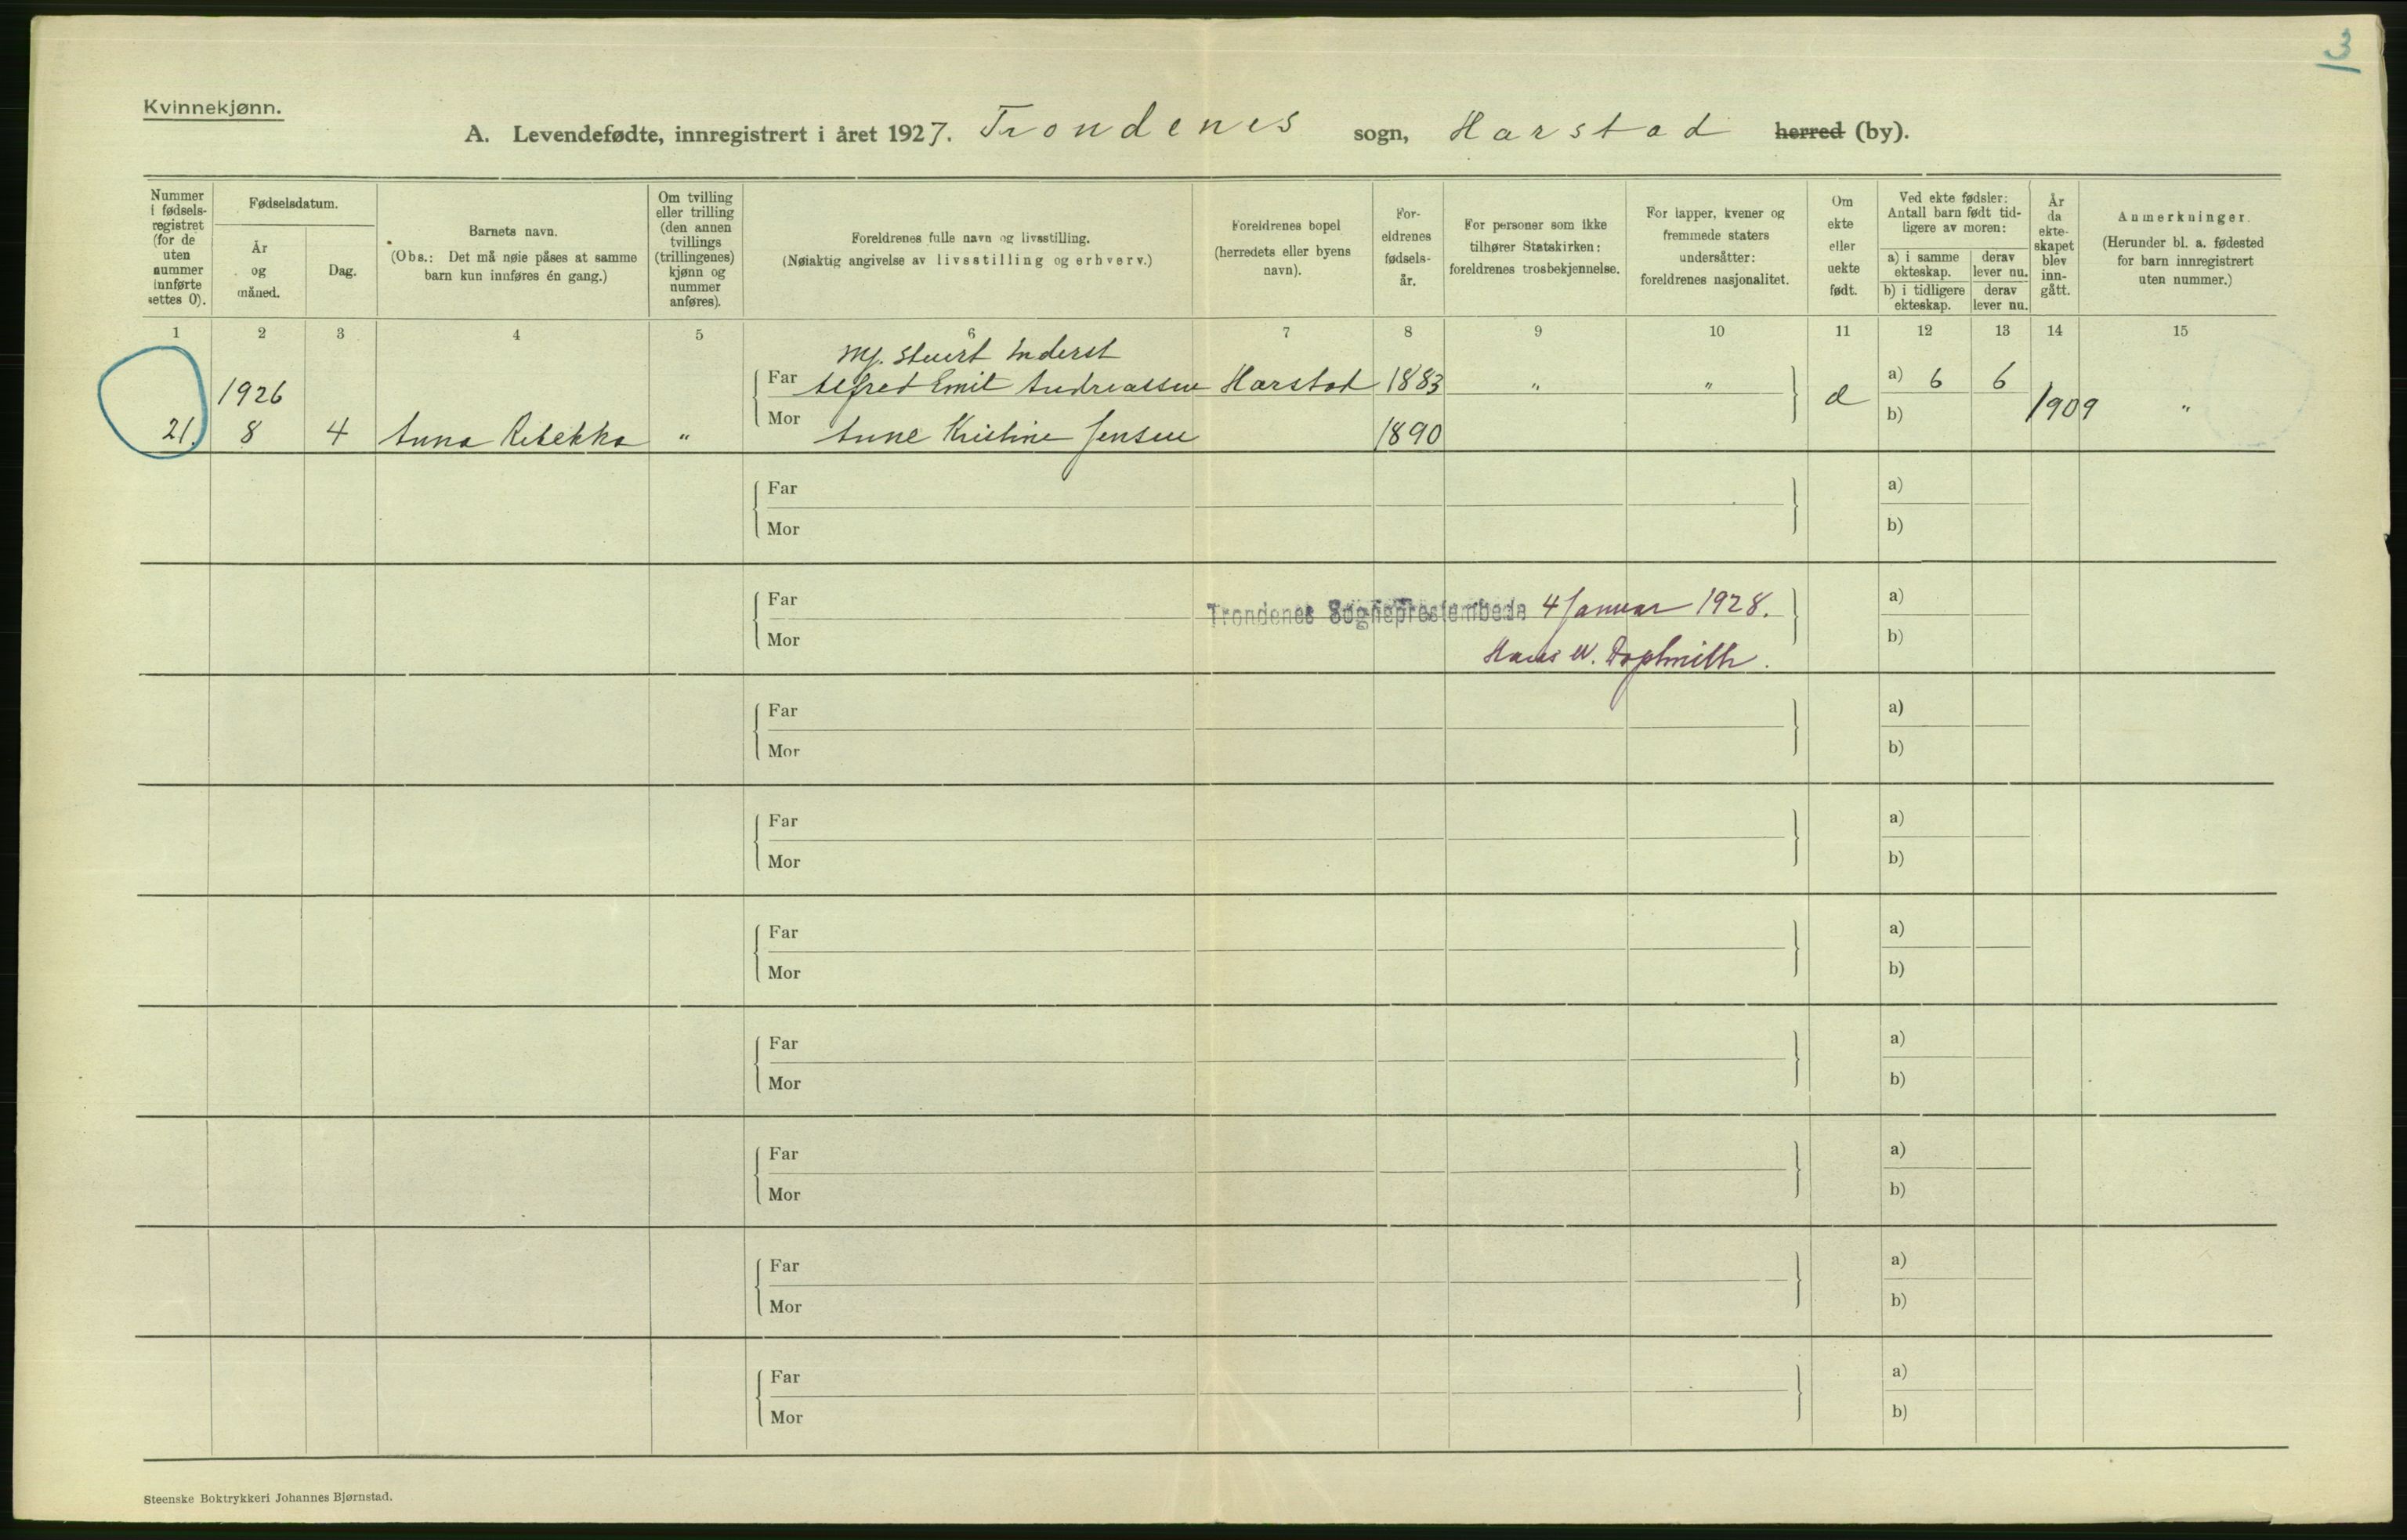 3
Kvinnekjønn.
A. Levendefødte, innregistrert i året 1927. Trondenes sogn, Harstad herred (by).
Nummer i fødsels-registret (for de uten nummer innførte settes 0).
Fødselsdatum.
År og måned.
Dag.
Barnets navn.
(Obs.: Det må nøie påses at samme barn kun innføres én gang.)
Om tvilling eller trilling (den annen tvillings (trillingenes) kjønn og nummer anføres).
Foreldrenes fulle navn og livsstilling.
(Nøiaktig angivelse av livsstilling og erhverv.)
Foreldrenes bopel
(herredets eller byens navn).
For-eldrenes fødsels-år.
For personer som ikke tilhører Statskirken: foreldrenes trosbekjennelse.
For lapper, kvener og fremmede staters undersåtter: foreldrenes nasjonalitet.
Om ekte eller uekte født.
Ved ekte fødsler: Antall barn født tid-ligere av moren:
a) i samme ekteskap.
derav lever nu.
b) i tidligere ekteskap.
derav lever nu.
År da ekte-skapet blev inn-gått.
Anmerkninger.
(Herunder bl. a. fødested for barn innregistrert uten nummer.)
1 2 3 4 5 6 7 8 9 10 11 12 13 14 15
1926
Far Alfred Emil Andreassen Harstad 1883 " " a) 6 6
b) 1909 "
21. 8 4 Anna Rebekka " Mor Anne Kristine Jensen 1890
Far a)
Mor b)
Far Trondenes Sogneprestembede 4 Januar 1928. a)
Mor b)
Hans W.
Far a)
Mor b)
Far a)
Mor b)
Far a)
Mor b)
Far a)
Mor b)
Far a)
Mor b)
Far a)
Mor b)
Far a)
Mor b)
Steenske Boktrykkeri Johannes Bjørnstad.